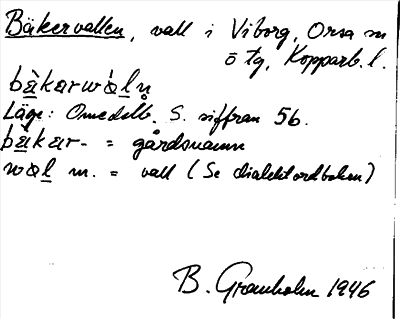 Bäkervallen, vall i Viborg, Orsa sn
ö tg, Kopparb. l.
bä̀karwàḷn̥
Läge: Omedelb. S. siffran 56.
bä̀kar- = gårdsnamn
waḷ m. = vall (Se dialektordboken)
B. Granholm 1946